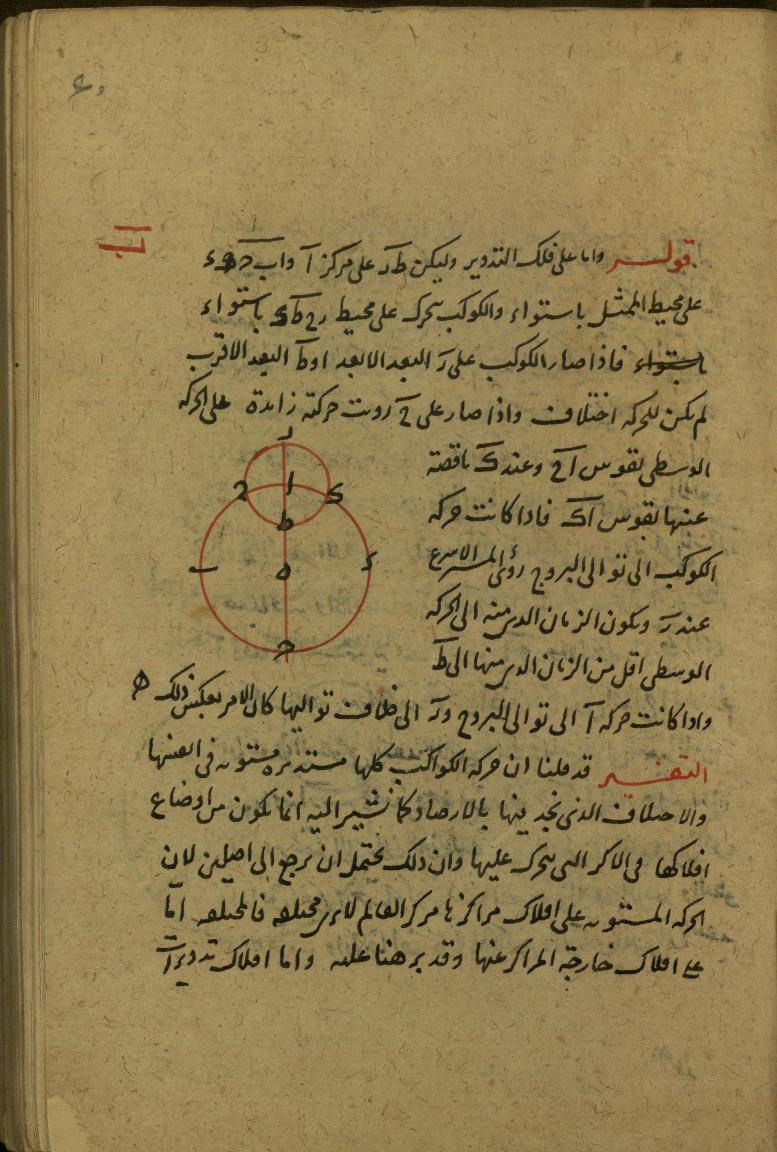 قولـه واما على فلك التدوير وليكن ط ر على مركز ا و ا ب ح ء
على محيط الممثل باستواء والكوكب يتحرك على محيط ر ح ط ك باستواء
باستواء فاذا صار الكوكب على ر البعد الابعد او ط البعد الاقرب
لم يكن للحركه اختلاف واذا صار على ح رويت حركته زايدة على الحركه
الوسطى بقوس ا ح وعند ك ناقصة
عنها بقوس ا ك فاذا كانت حركه
الكوكب الى توالى البروج رؤى المسير الاسرع
عند ر ويكون الزمان الذى منه الى الحركه
الوسطى اقل من الزمان الذى منها الى ط
واذا كانت حركه ا الى توالى البروج و ر الى خلاف تواليها كان الامر بعكس ذلك
التفسير قد قلنا ان حركه الكواكب كلها مستديره مستويه فى انفسها
والاختلاف الذى نجد فيها بالارصاد كما نشير اليه انما يكون من اوضاع
افلاكها فى الاكر التى يتحرك عليها وان ذلك يحتمل ان يرجع الى اصلين لان
الحركه المستويه على افلاك مراكزها مركز العالم لا يرى مختلفه فالمختلفه اما
على افلاك خارجة المراكز عنها وقد برهنا عليه واما افلاك تدويرات
ر
ح ا ك
ط
ب ه ء
ح